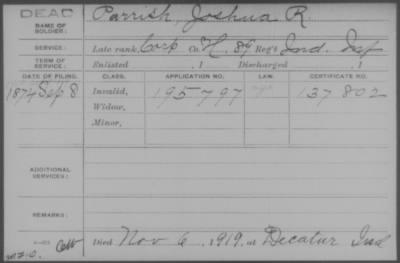 DEAD
NAME OF SOLDIER: Parrish, Joshua R.
SERVICE: Late rank, Corp Co. H, 89 Reg't Ind. Inf
TERM OF SERVICE: Enlisted , 1 Discharged , 1
DATE OF FILING. CLASS. APPLICATION NO. LAW. CERTIFICATE NO.
1874 Sep 8 Invalid, 195797 137802
Widow,
Minor,
ADDITIONAL SERVICES:
REMARKS:
Died Nov 6, 1919, at Decatur Ind